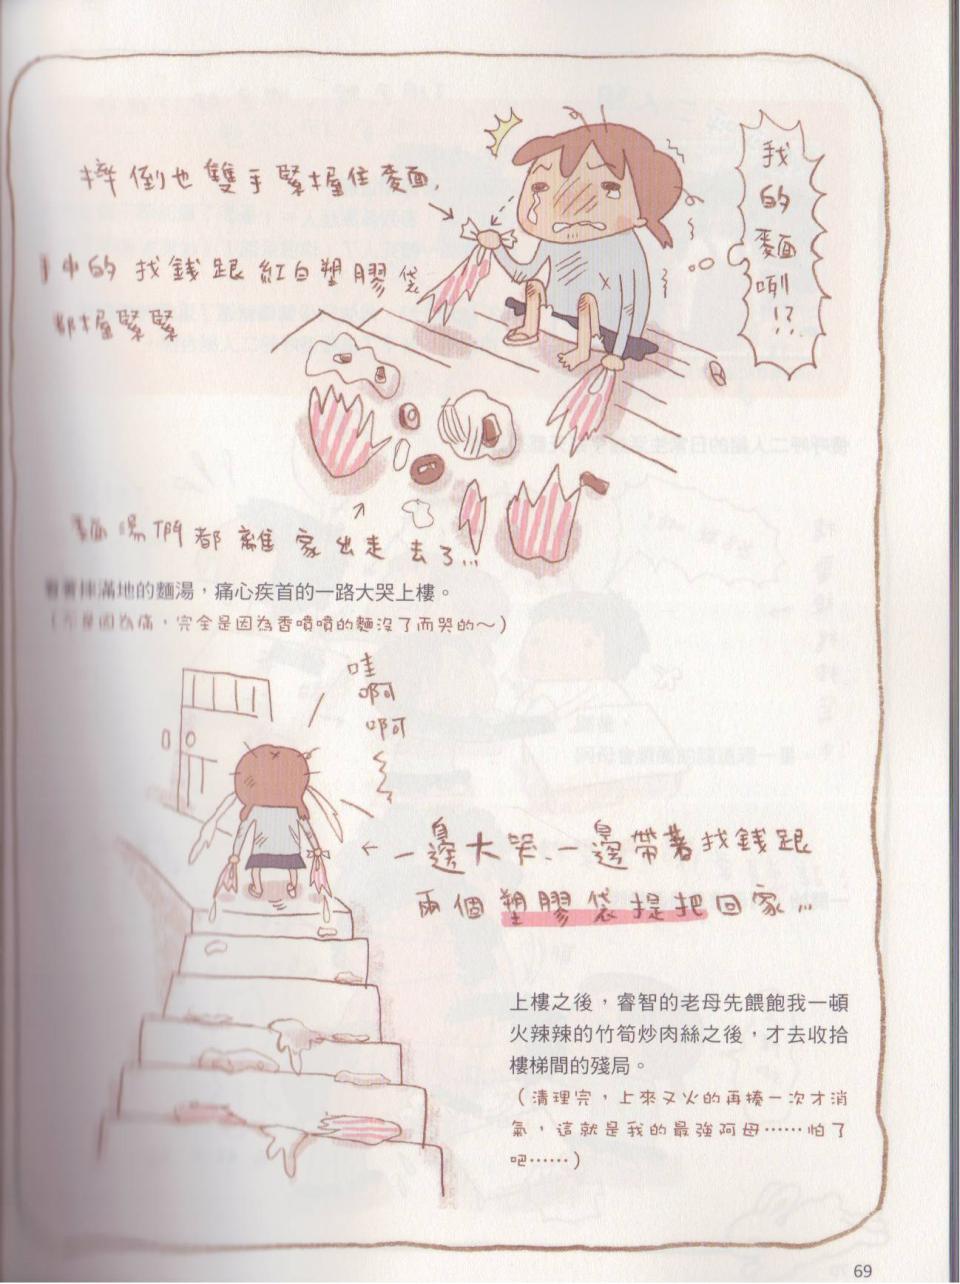 摔倒也雙手緊握住麵,
手中的找錢跟紅白塑膠袋
都握緊緊
我的麵咧!?
麵湯們都離家出走去了...
看著摔滿地的麵湯,痛心疾首的一路大哭上樓。
(不是因為痛,完全是因為香噴噴的麵沒了而哭的~)
哇
啊
啊
一邊大哭、一邊帶著找錢跟
兩個塑膠袋提把回家...
上樓之後,睿智的老母先餵飽我一頓
火辣辣的竹筍炒肉絲之後,才去收拾
樓梯間的殘局。
(清理完,上來又火的再揍一次才消
氣,這就是我的最強阿母……怕了
吧……)
69